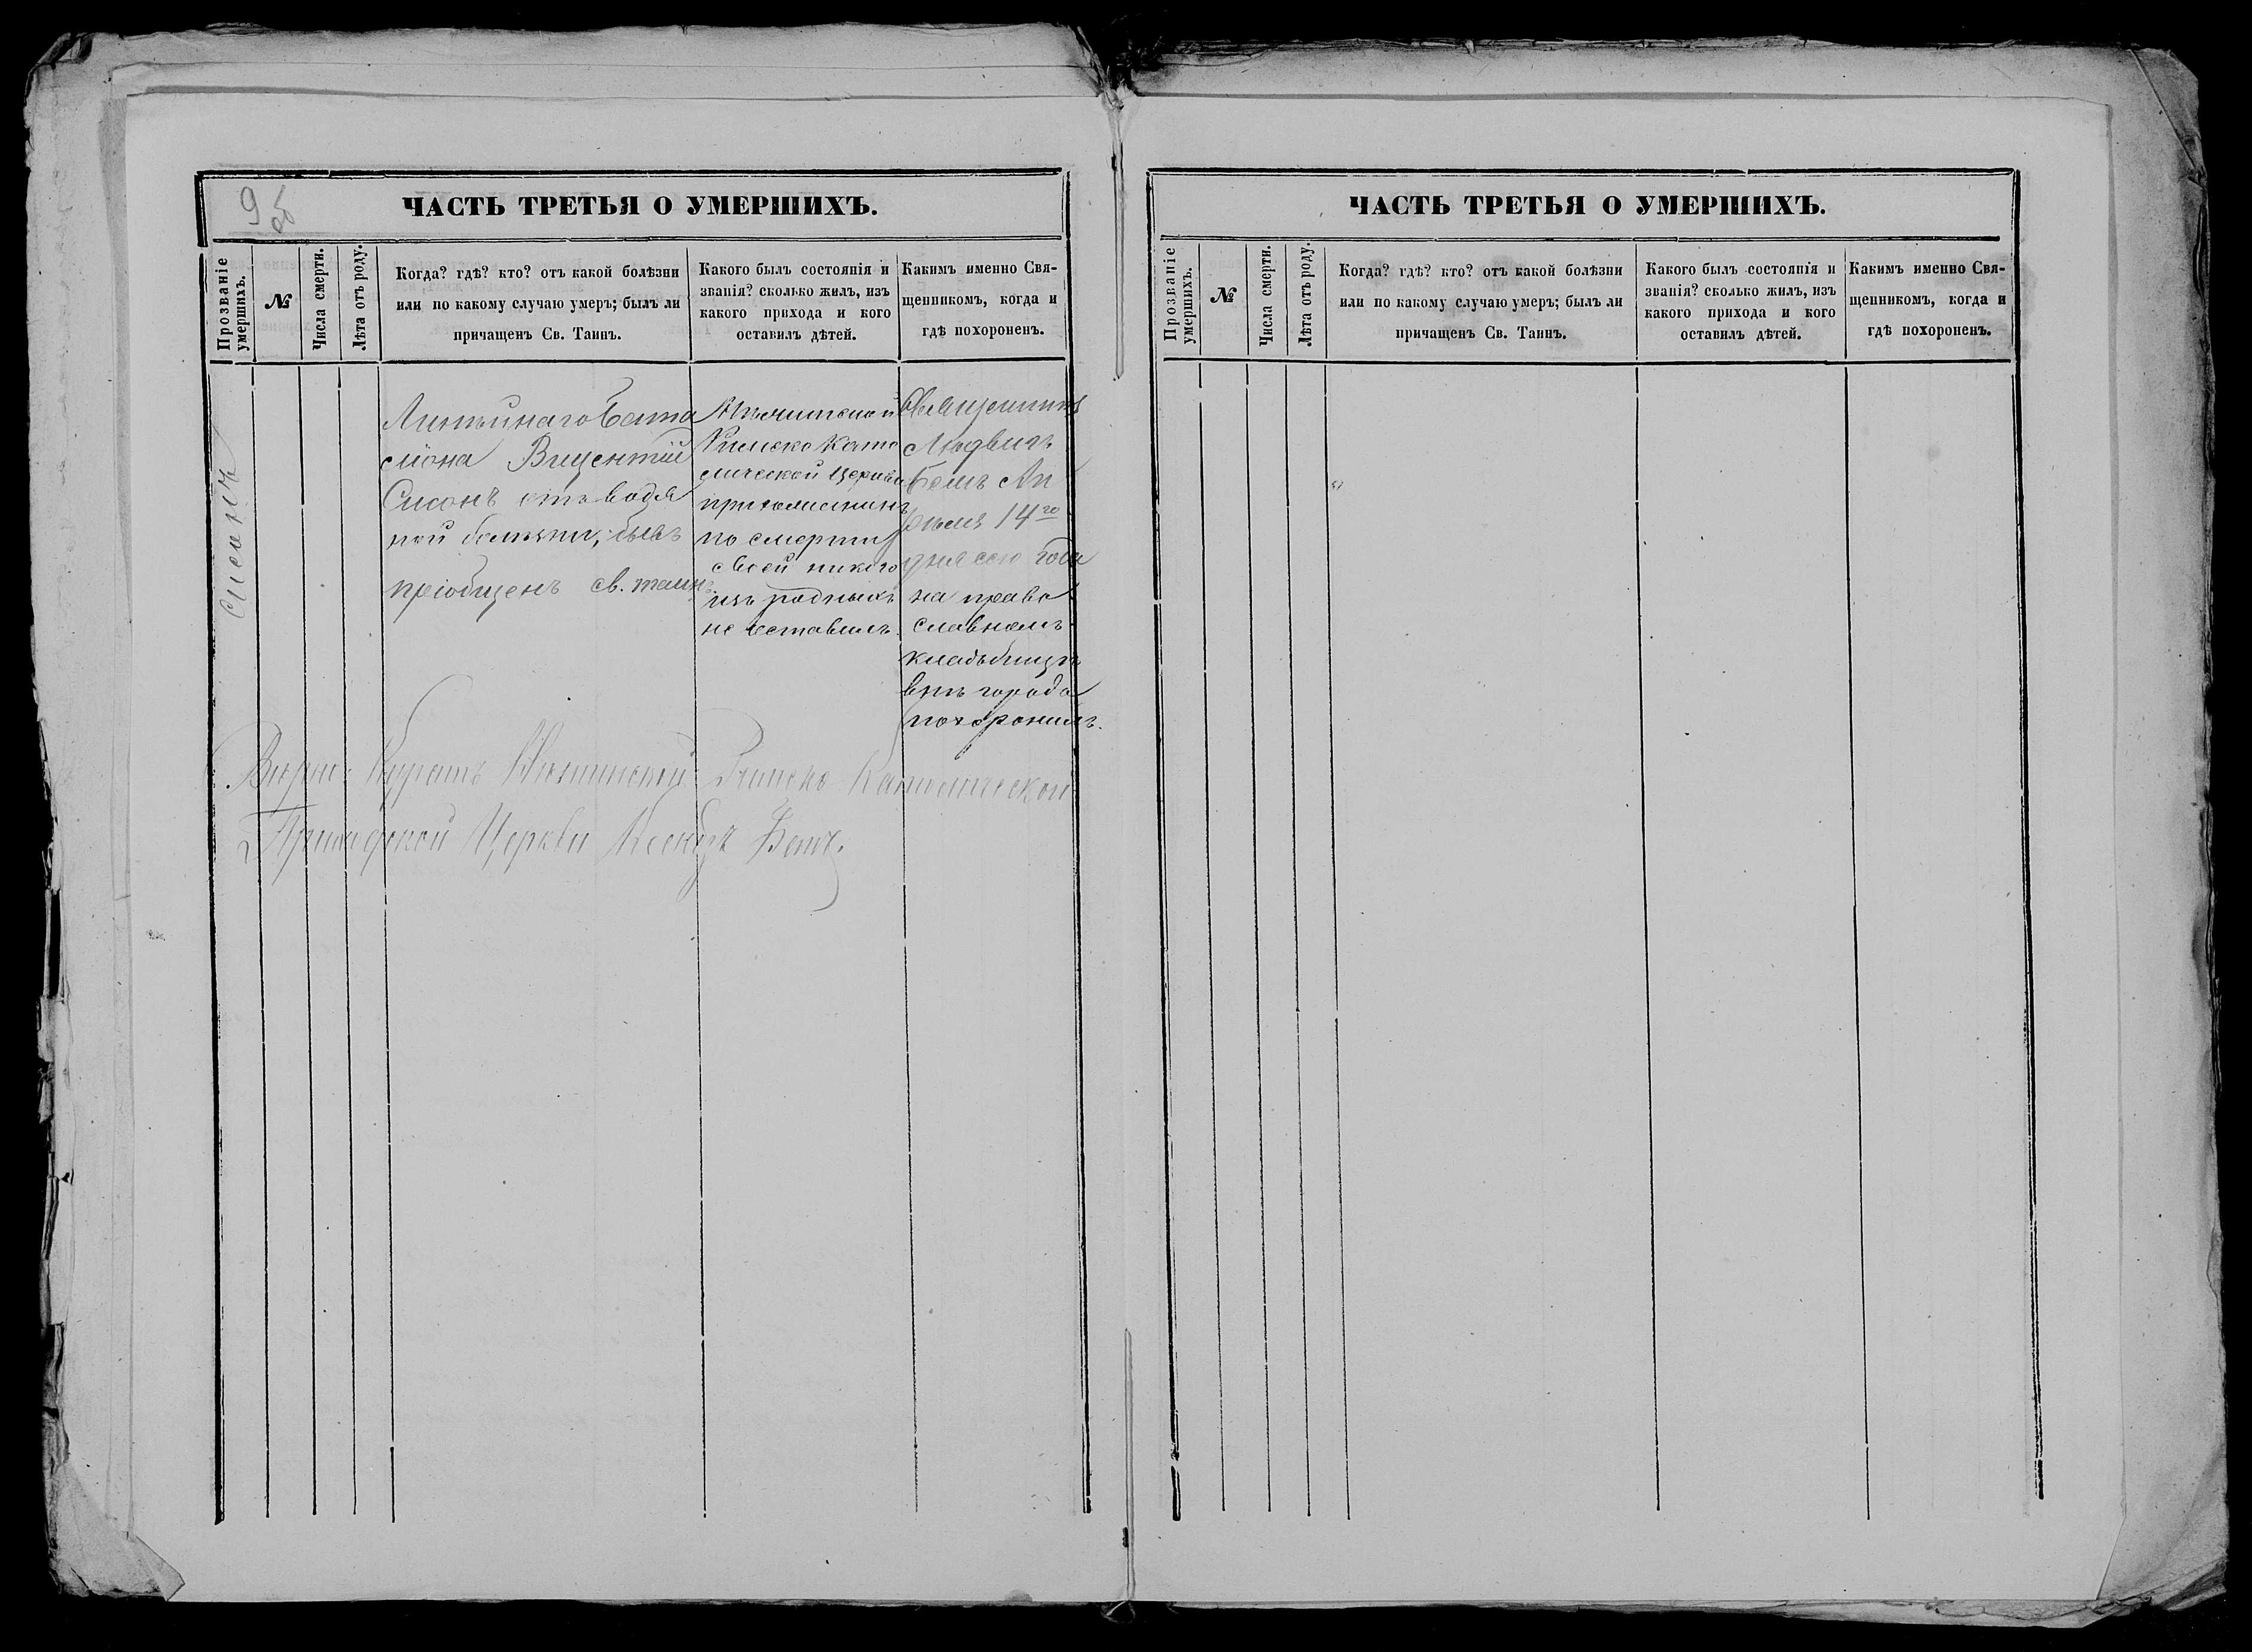 9 об
ЧАСТЬ ТРЕТЬЯ О УМЕРШИХЪ.
Прозваніе умершихъ.
№
Числа смерти.
Лѣта отъ роду.
Когда? гдѣ? кто? отъ какой болѣзни
или по какому случаю умеръ; былъ ли
причащенъ Св. Таинъ.
Какого былъ состоянія и
званія? сколько жилъ, изъ
какого прихода и кого
оставилъ дѣтей.
Какимъ именно Свя-
щенникомъ, когда и
гдѣ похороненъ.
Сисонъ
Линѣйнаго Бата
ліона Вицентій
Сисонъ отъ водя
ной болѣзни, былъ
пріобщенъ св. таинъ.
Римско Като
лической Церкви
прихожанинъ
по смерти
своей никого
изъ родныхъ
не оставилъ.
Священникъ
Людвигъ
Бемъ Ап
рѣля 14го
дня сего года
на право
славномъ
кладбищѣ
внѣ города
похоронилъ.
Куратъ Римско-Католической
Приходской Церкви Ксендзъ Бемъ.
ЧАСТЬ ТРЕТЬЯ О УМЕРШИХЪ.
Прозваніе умершихъ.
№
Числа смерти.
Лѣта отъ роду.
Когда? гдѣ? кто? отъ какой болѣзни
или по какому случаю умеръ; былъ ли
причащенъ Св. Таинъ.
Какого былъ состоянія и
званія? сколько жилъ, изъ
какого прихода и кого
оставилъ дѣтей.
Какимъ именно Свя-
щенникомъ, когда и
гдѣ похороненъ.